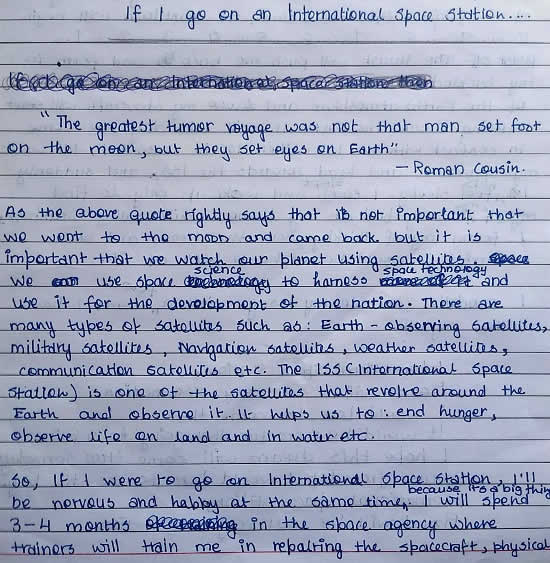 If I go on an International Space Station....
If I go on an International Space Station then
"The greatest tumor voyage was not that man set foot
on the moon, but they set eyes on Earth"
— Roman Cousin.
As the above quote rightly says that its not important that
we went to the moon and came back but it is
important that we watch our planet using satellites. space
We can use space science to harness space technology and
use it for the development of the nation. There are
many types of satellites such as: Earth-observing satellites,
military satellites, Navigation satellites, weather satellites,
communication satellites etc. The ISS (International Space
Station) is one of the satellites that revolve around the
Earth and observe it. It helps us to: end hunger,
observe life on land and in water etc.
So, If I were to go on International Space Station, I'll
be nervous and habby at the same time, because it's a big thing I will spend
3-4 months in the space agency where
trainers will train me in repairing the spacecraft, physical